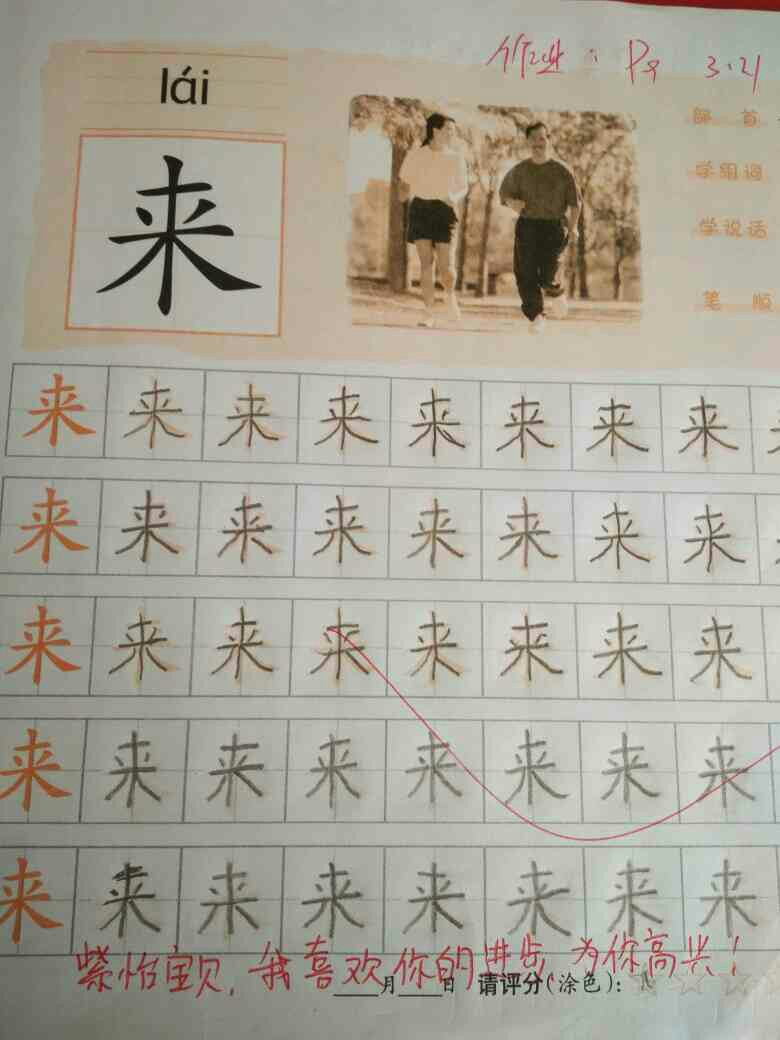 作业：P8 3.21
lái
来
部首
学组词
学说话
笔顺
来来来来来来来来来
来来来来来来来来来
来来来来来来来来
来来来来来来来来
来来来来来来来来
紫怡宝贝，我喜欢你的进步，为你高兴！
____月____日 请评分（涂色）：